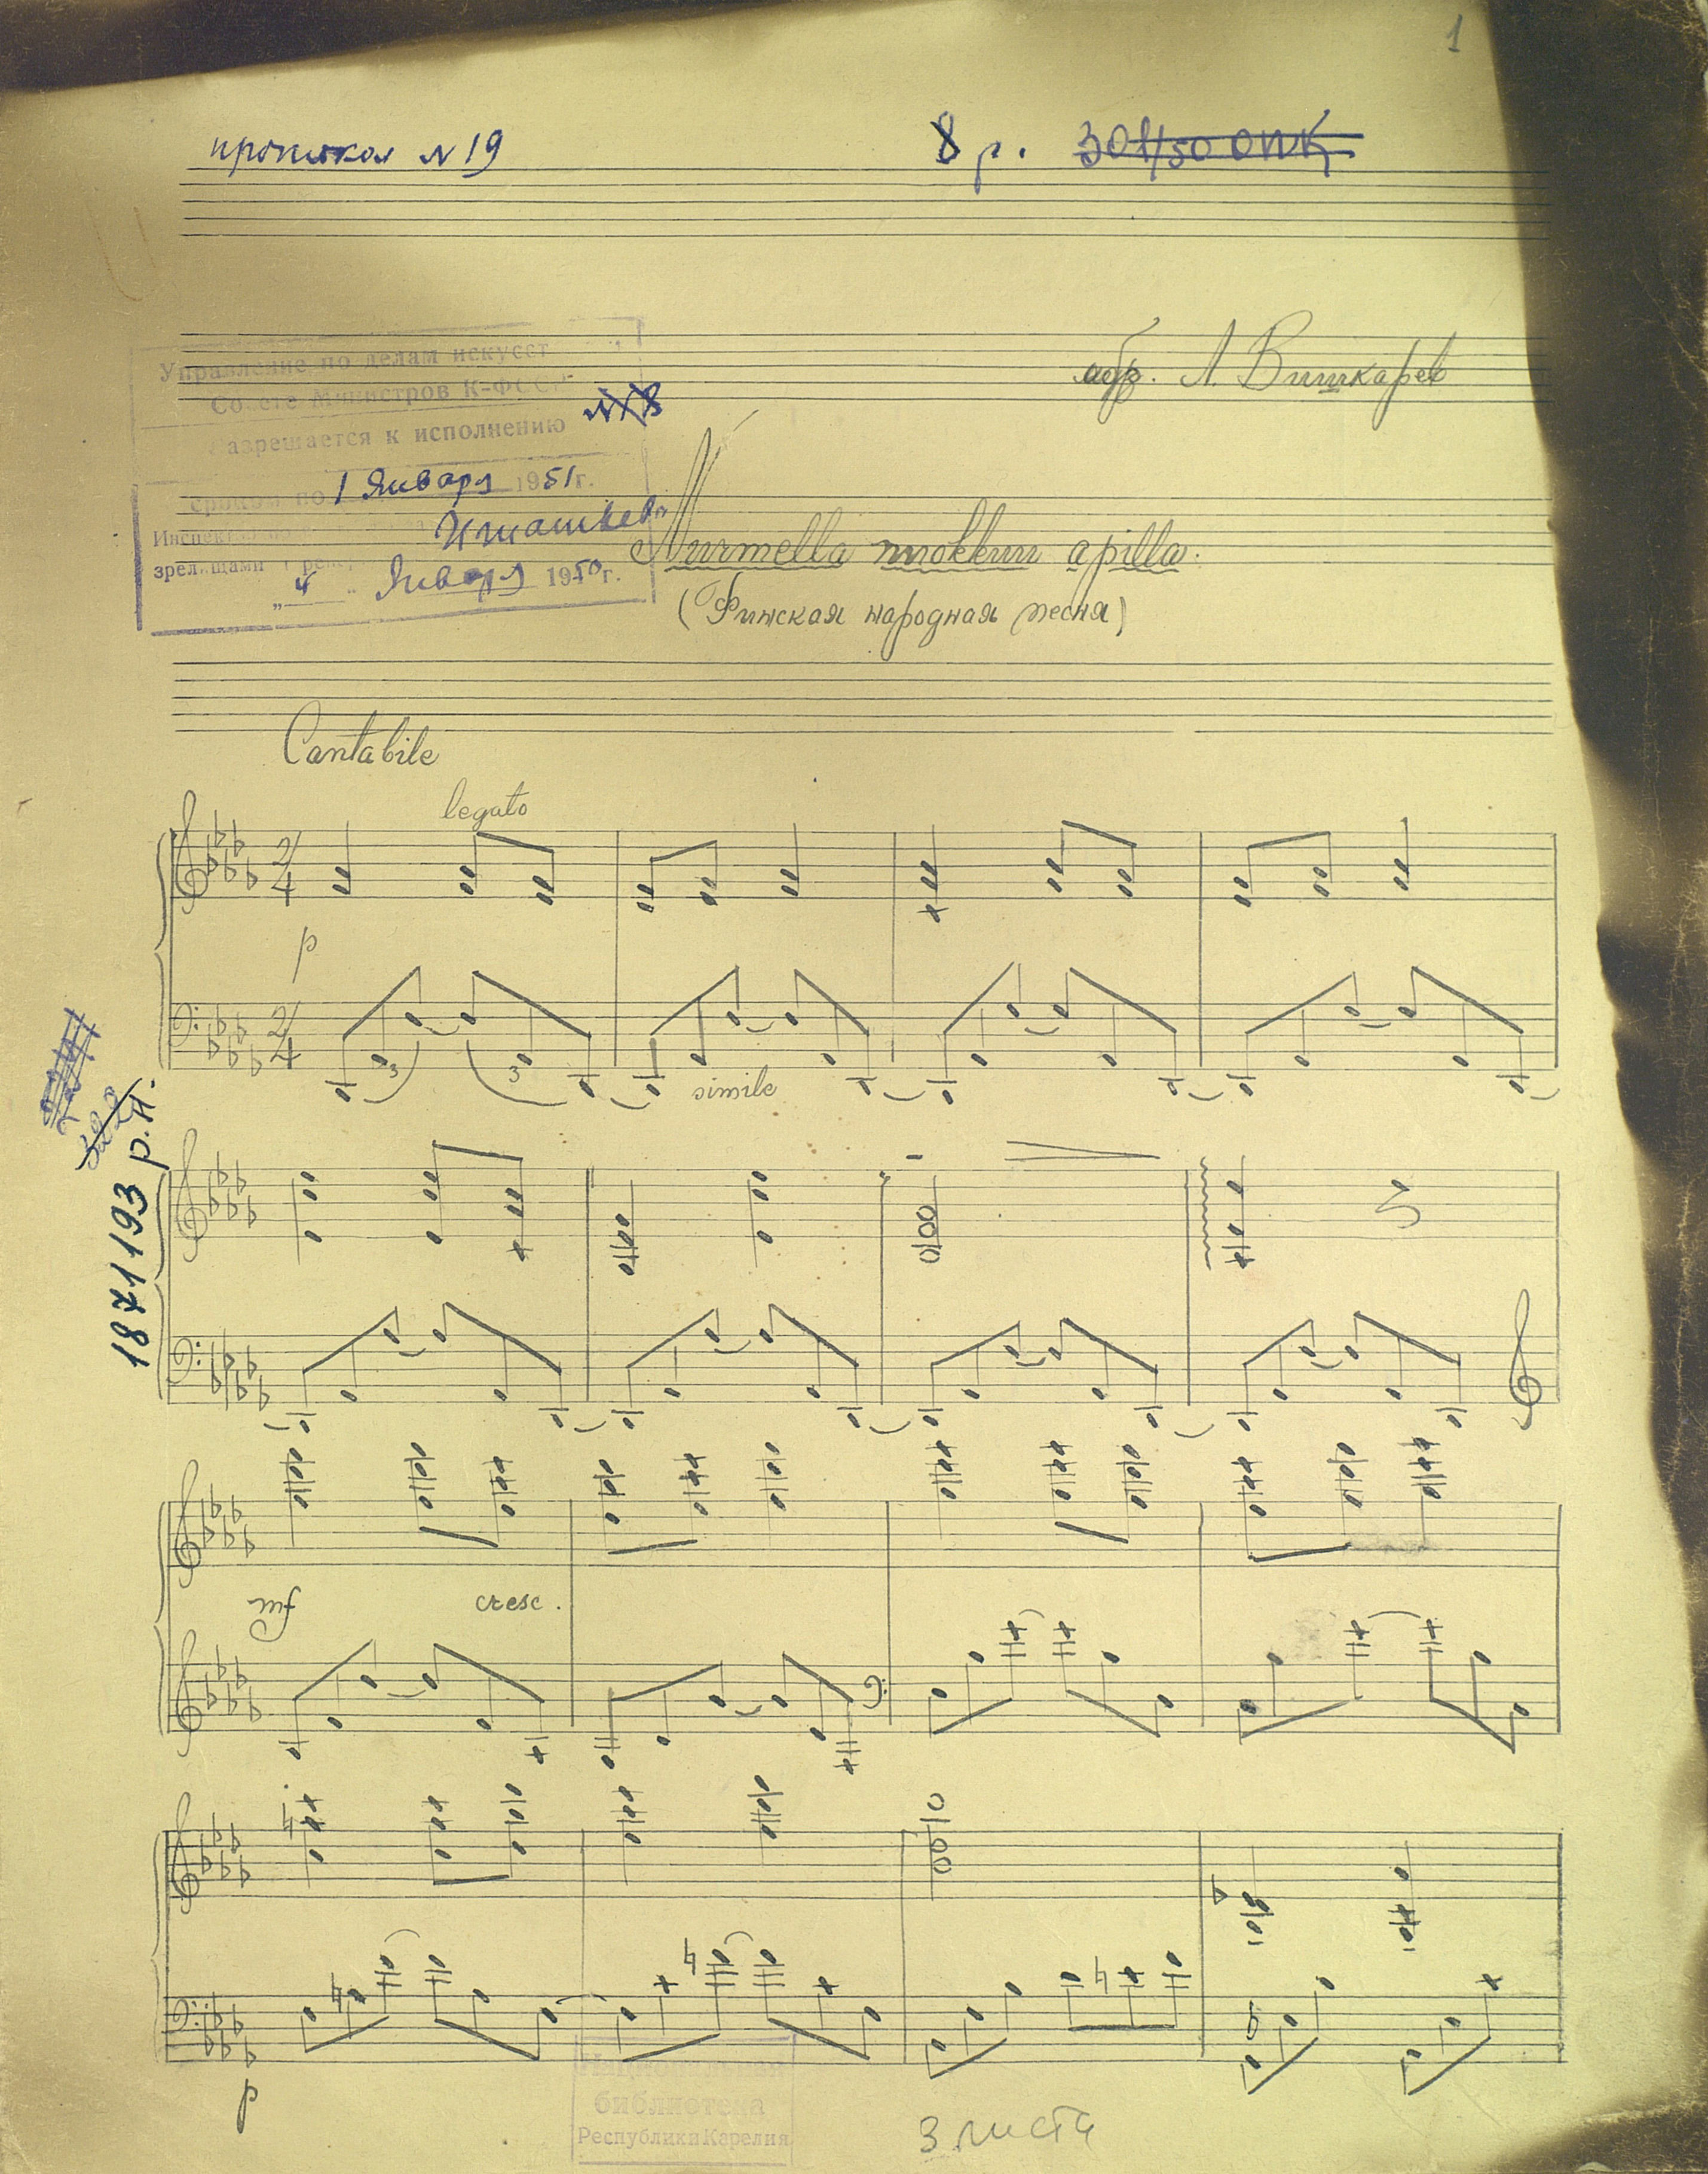 1
протокол N 19
8 р. 301/50 ОПК
обр. Л. Вишкарев
Управление по делам искусст
Совете Министров К-ФССР
N 8
азрешается к исполнению
сроком по 1 Января 1951 г.
зрелищами и
"4" Января 1950 г.
Nurmella nuokkuu apilla.
(Финская народная песня)
Cantabile
legato
2/4
p
2/4
3
3
simile
1871193 р.н.
mf
cresc.
p
Национальная
библиотека
Республики Карелия
3 листа